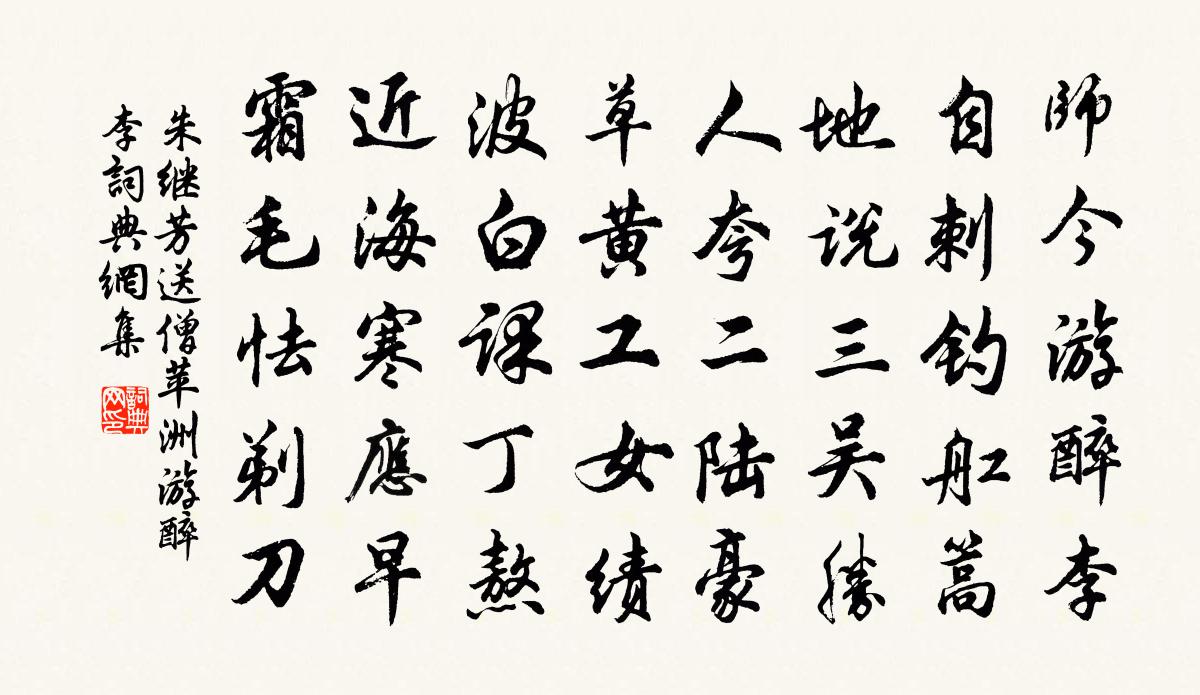 師今游醉李
自刺釣舡蒿
地说三吴勝
人夸二陆豪
草黄工女绩
波白課丁熬
近海寒應早
霜毛怯剃刀
朱继芳送僧苹洲游醉
李詞典網集
詞典
网印